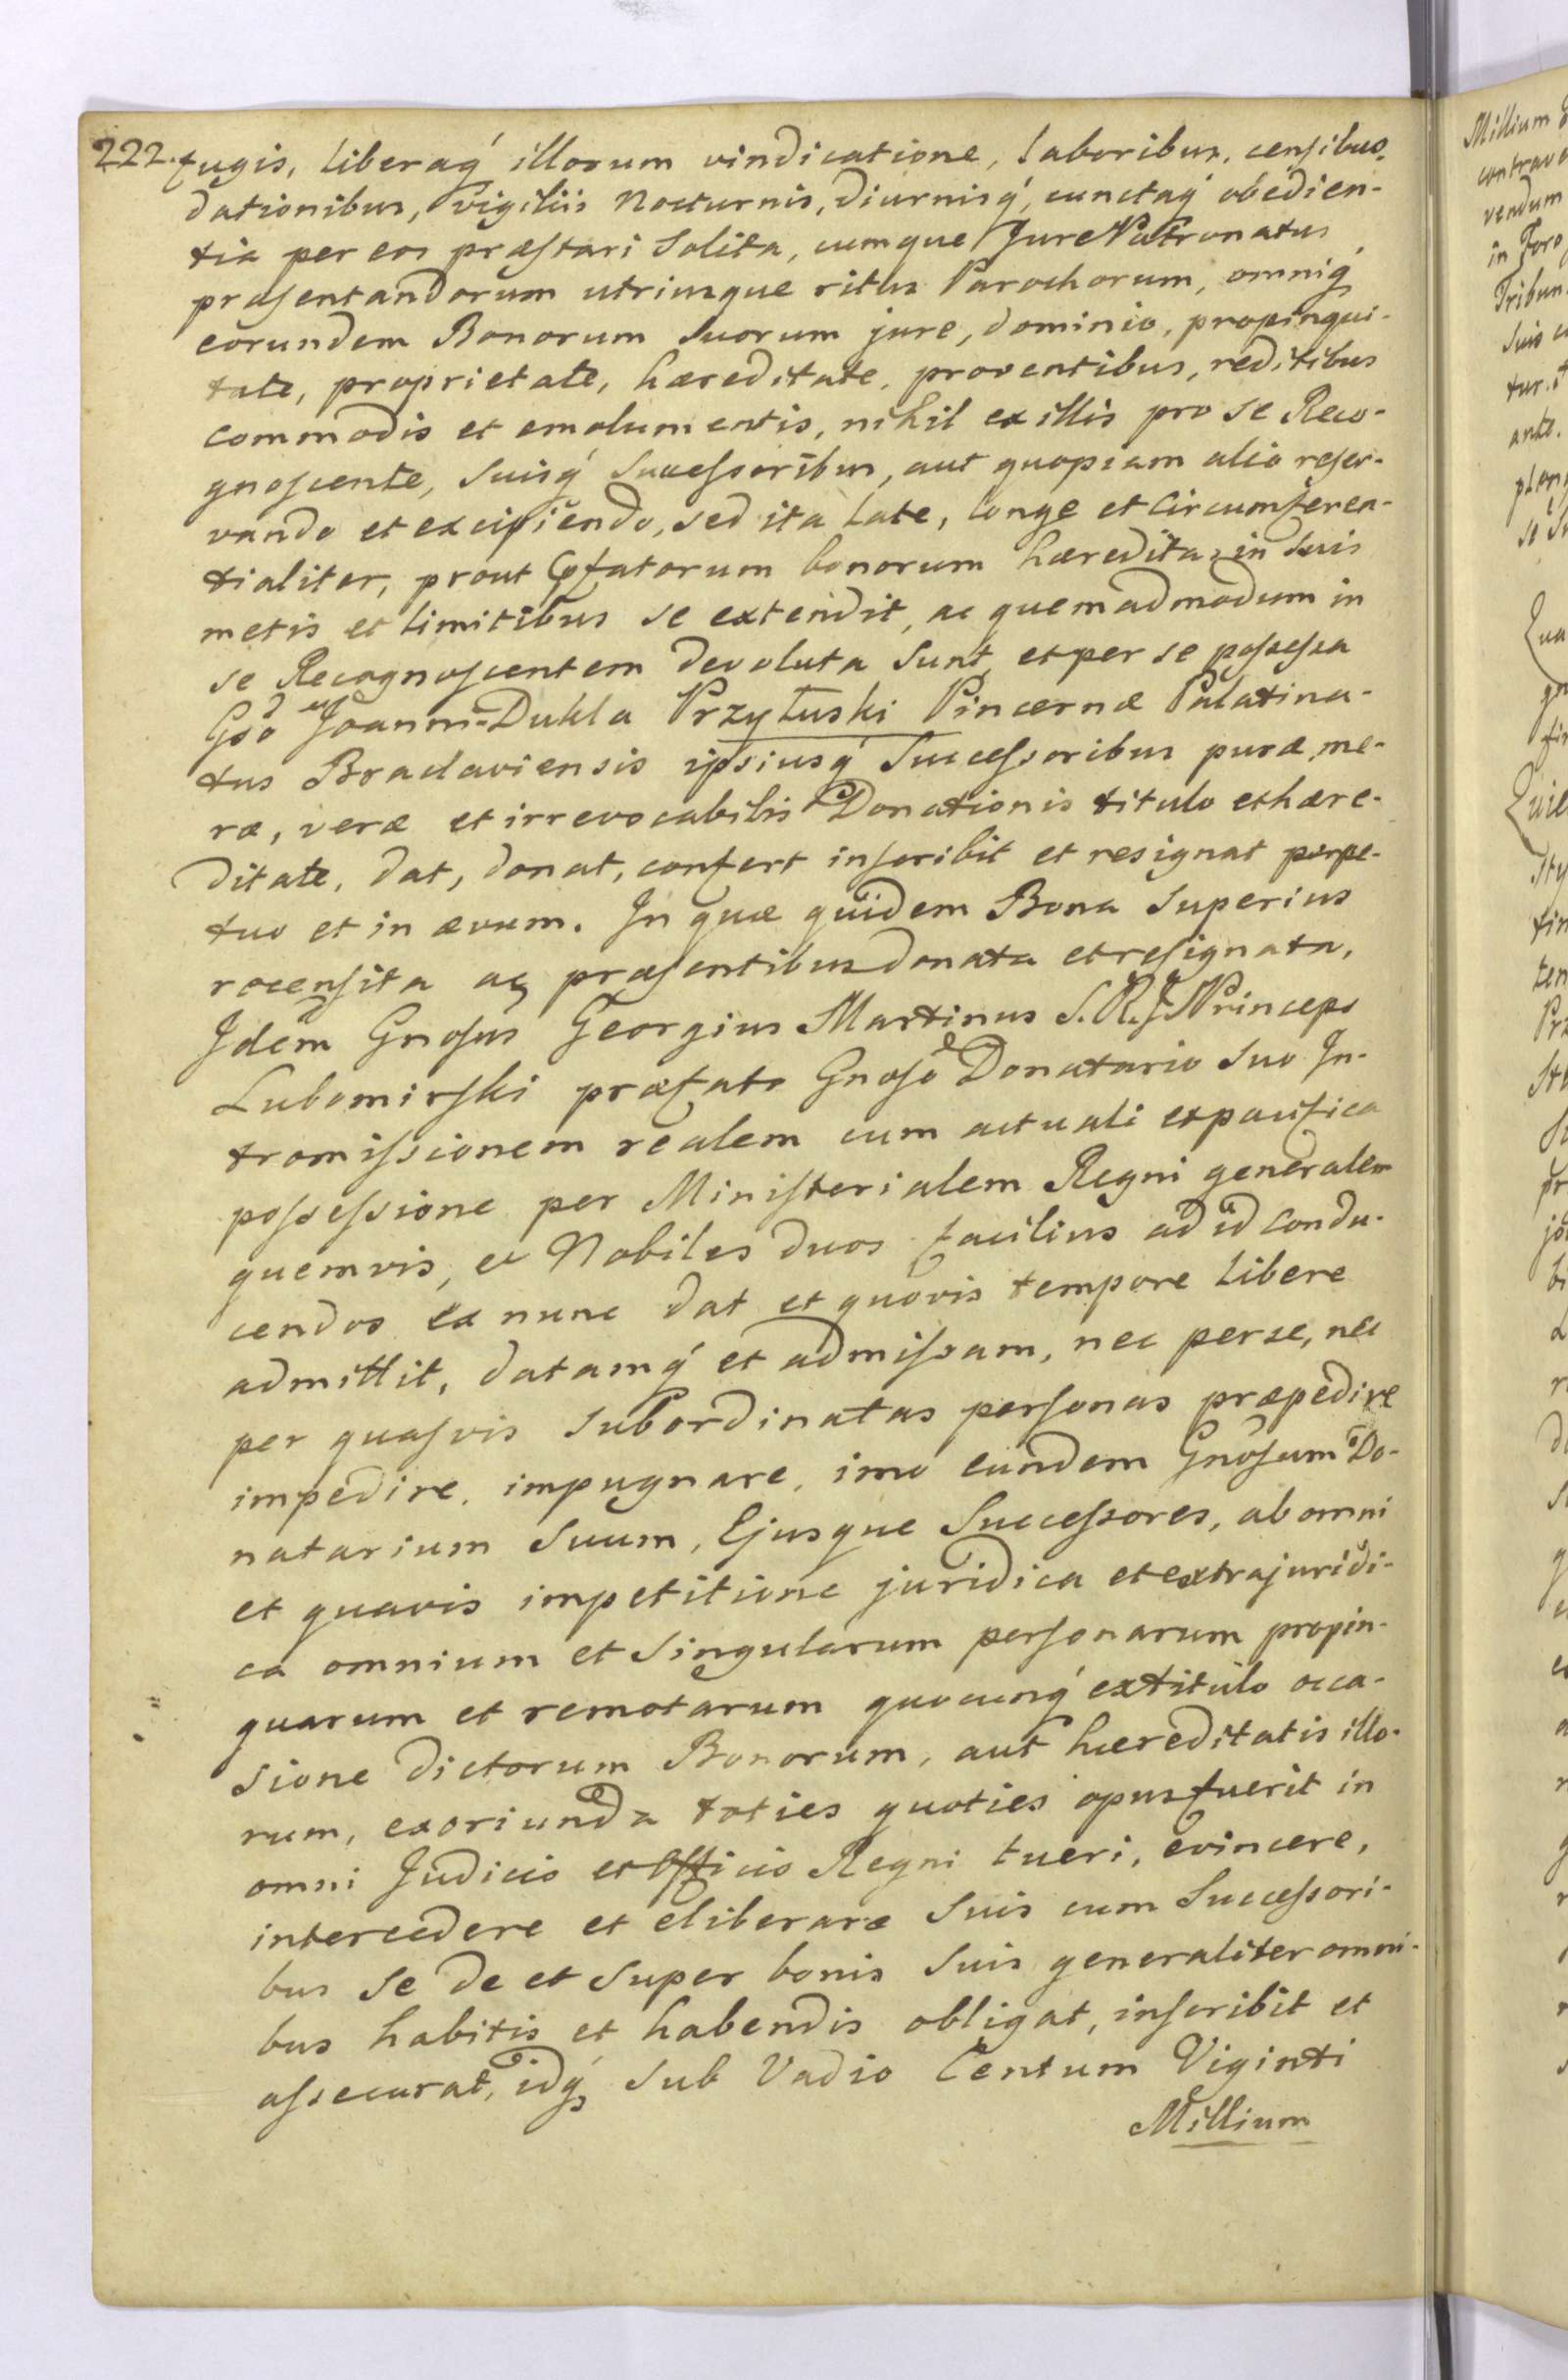 222. fugis, liberaq́ illorum vindicatione, laboribus, censibus,
dationibus, vigiliis Nocturnis, diurnisq́, cunctaq́ obedien-
tia per eos præstari solita, cumque Jure Patronatus
præsentandorum utriusque ritus Parochorum, omniq́
eorundem Bonorum suorum jure, dominio, propinqui-
tate, proprietate, hæreditate, proventibus, reditibus
commodis et emolumentis, nihil ex illis pro se Reco-
gnoscente, suisq́ Successoribus, aut quopiam alio reser-
vando et excipiendo, sed ita late, longe et circumferen-
tialiter, prout pfatorum bonorum hæreditas in suis
metis et limitibus se extendit, ac quemadmodum in
se Recognoscentem devoluta sunt et per se possessa
Gsô Joanni Dukla Przyłuski Pincernæ Palatina-
tus Braclaviensis ipsiusq́ Successoribus puræ, me-
ræ, veræ et irrevocabilis Donationis titulo et hære-
ditate, dat, donat, confert inscribit et resignat perpe-
tuo et in ævum. In quæ quidem Bona superius
recensita ac præsentibus donata et resignata,
Idem Gnosus Georgius Martinus S. R. J. Princeps
Lubomirski præfato Gnoso Donatario suo In-
tromissionem realem cum actuali et pacifica
possessione per Ministerialem Regni generalem
quemvis, et Nobiles duos facilius ad id condu-
cendos ex nunc dat et quovis tempore libere
admittit, datamq́ et admissam, nec per se, nec
per quasvis subordinatas personas præpedire
impedire, impugnare, imo eundem Gnosum Do-
natarium suum, Ejusque Successores, ab omni
et quavis impetitione juridica et extrajuridi-
ca omnium et singularum personarum propin-
quarum et remotarum quocunq́ ex titulo occa-
sione dictorum Bonorum, aut hæreditatis illo-
rum, exoriunda toties quoties opus fuerit in
omni Judicio et Officio Regni tueri, evincere,
intercedere et eliberare suis cum Successori-
bus se de et super bonis suis generaliter omni-
bus habitis et habendis obligat, inscribit et
assecurat, idq́ sub Vadio Centum Viginti
Millium